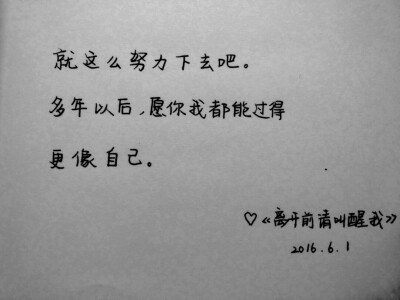 就这么努力下去吧。
多年以后,愿你我都能过得
更像自己。
♡《离开前请叫醒我》
2016.6.1